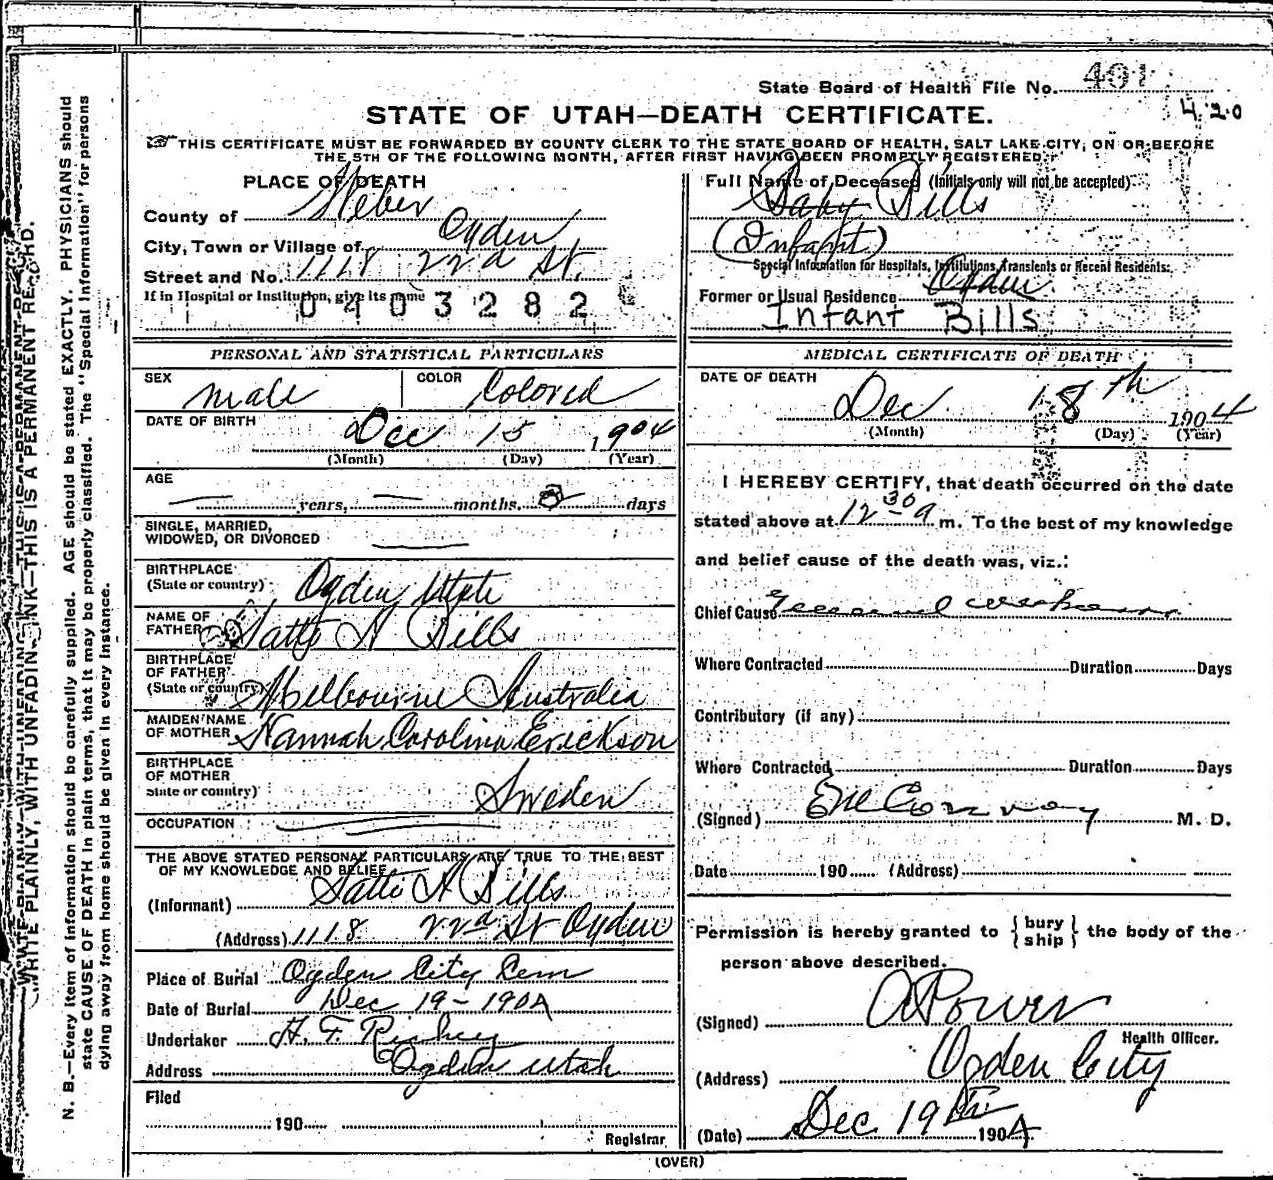 State Board of Health File No. 401
4.20
STATE OF UTAH—DEATH CERTIFICATE.
THIS CERTIFICATE MUST BE FORWARDED BY COUNTY CLERK TO THE STATE BOARD OF HEALTH, SALT LAKE CITY, ON OR BEFORE
THE 5TH OF THE FOLLOWING MONTH, AFTER FIRST HAVING BEEN PROMPTLY REGISTERED.
PLACE OF DEATH
County of Weber
City, Town or Village of Ogden
Street and No. 1118 22nd St.
If in Hospital or Institution, give its name
0403282
Full Name of Deceased (Initials only will not be accepted)
Baby Bills
(Infant)
Special Information for Hospitals, Institutions, Transients or Recent Residents:
Former or Usual Residence Ogden
Infant Bills
PERSONAL AND STATISTICAL PARTICULARS
SEX male COLOR Colored
DATE OF BIRTH Dec 15 1904
(Month) (Day) (Year)
AGE
— years, — months, 3 days
SINGLE, MARRIED,
WIDOWED, OR DIVORCED —
BIRTHPLACE
(State or country) Ogden Utah
NAME OF
FATHER Satto A Bills
BIRTHPLACE
OF FATHER
(State or country) Melbourne Australia
MAIDEN NAME
OF MOTHER Hannah Carolina Erickson
BIRTHPLACE
OF MOTHER
State or country) Sweden
OCCUPATION
THE ABOVE STATED PERSONAL PARTICULARS ARE TRUE TO THE BEST
OF MY KNOWLEDGE AND BELIEF
(Informant) Satto A Bills
(Address) 1118 22nd St Ogden
Place of Burial Ogden City Cem
Date of Burial Dec 19 - 1904
Undertaker H. F.
Address Ogden Utah
Filed
190
Registrar
MEDICAL CERTIFICATE OF DEATH
DATE OF DEATH
Dec 18th 1904
(Month) (Day) (Year)
I HEREBY CERTIFY, that death occurred on the date
stated above at 12 30 a m. To the best of my knowledge
and belief cause of the death was, viz.:
Chief Cause General weakness
Where Contracted Duration Days
Contributory (if any)
Where Contracted Duration Days
(Signed) EM Conroy M. D.
Date 190 (Address)
Permission is hereby granted to { bury
ship } the body of the
person above described.
(Signed) A Power
Health Officer.
(Address) Ogden City
(Date) Dec 19th 1904
(OVER)
WRITE PLAINLY, WITH UNFADING INK—THIS IS A PERMANENT RECORD.
N. B.—Every item of information should be carefully supplied. AGE should be stated EXACTLY. PHYSICIANS should
state CAUSE OF DEATH in plain terms, that it may be properly classified. The "Special Information" for persons
dying away from home should be given in every instance.